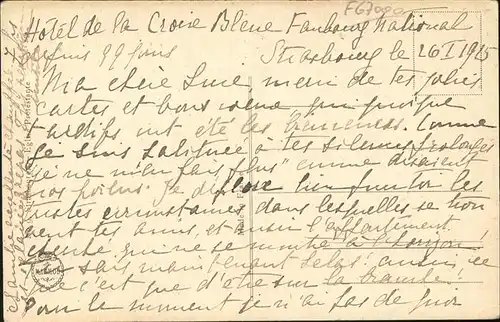 FG7090
Hôtel de la Croix Bleue Faubourg National
depuis 99 jours Strasbourg le 26 I 1925
Ma chère Luce merci de tes jolies
cartes et bons voeux qui quoique
tardifs ont été les bienvenus. Comme
je suis habituée à tes silences prolongés
je ne m'en fais plus" comme disaient
nos poilus. Je déplore bien les
tristes circonstances dans lesquelles se trou
vent tes amis, et aussi l'appartement
cherché qui ne se montre à l'horizon!
Je sais maintenant hélas! aussi ce
que c'est que d'être sur la branche!
Pour le moment je n'ai pas de